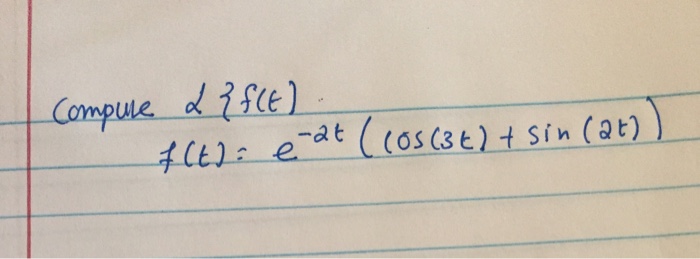 Compute ℒ{f(t)
f(t) = e^-2t (cos(3t) + sin(2t))